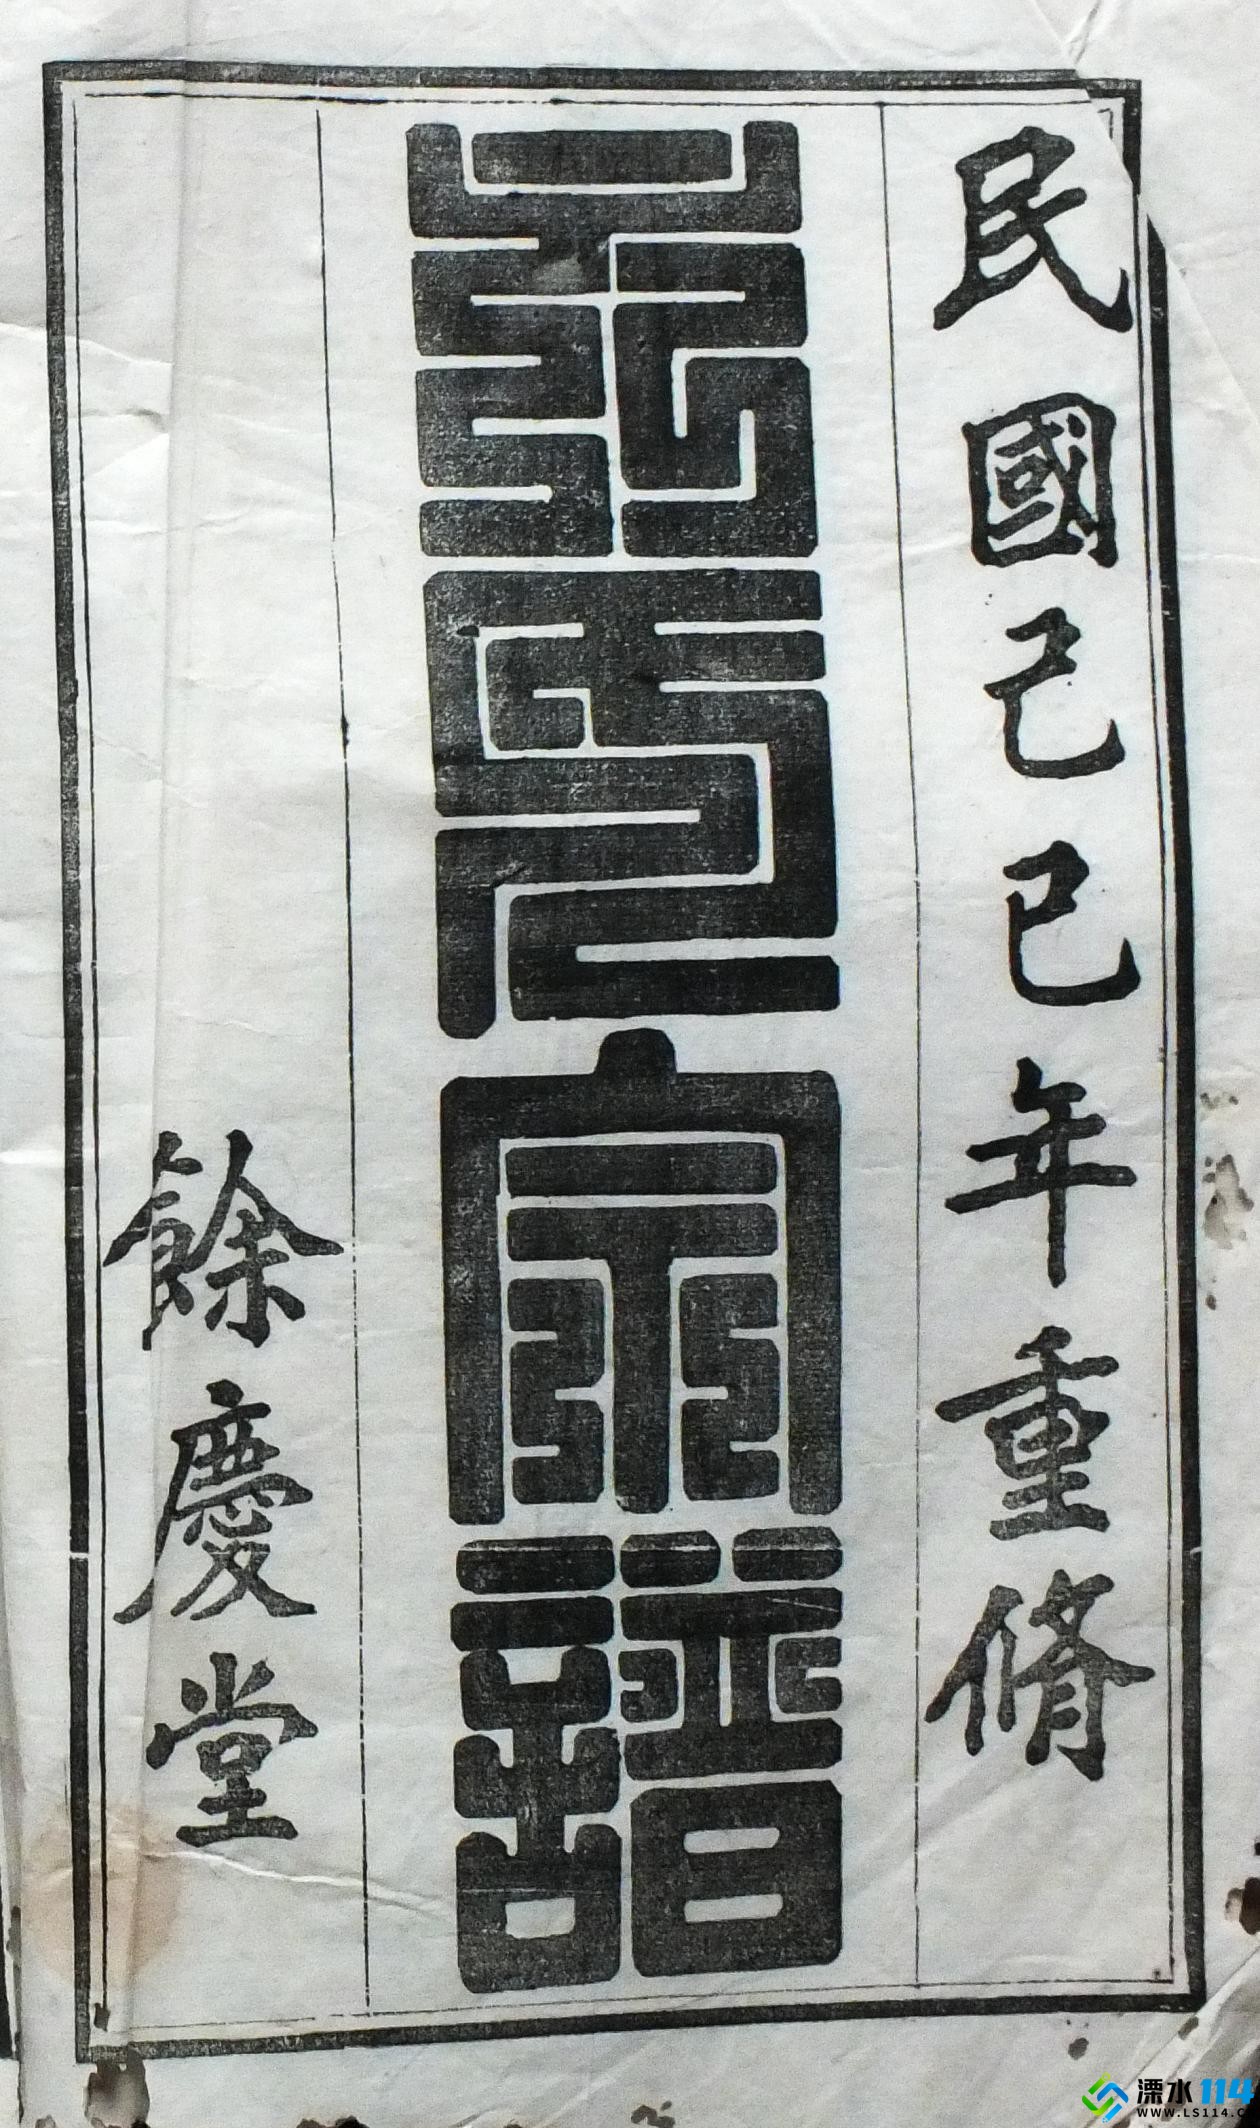 民國己巳年重修
宗譜
餘慶堂
溧水114
WWW.LS114.C